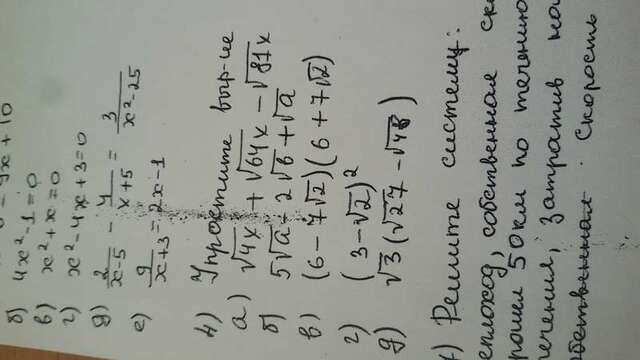 - 9x + 10
б) 4x² - 1 = 0
в) x² + x = 0
г) x² - 4x + 3 = 0
д) 2/(x-5) - 4/(x+5) = 3/(x²-25)
е) 9/(x+3) = 2x - 1
4) Упростите выр-ие
а) √4x + √64x - √81x
б) 5√a - 2√b + √a
в) (6 - 7√2)(6 + 7√2)
г) (3 - √2)²
д) √3(√27 - √48)
) Решите систему:
еплоход, собственная ск
рошел 50км по течению
течения, затратив на
обственная скорость